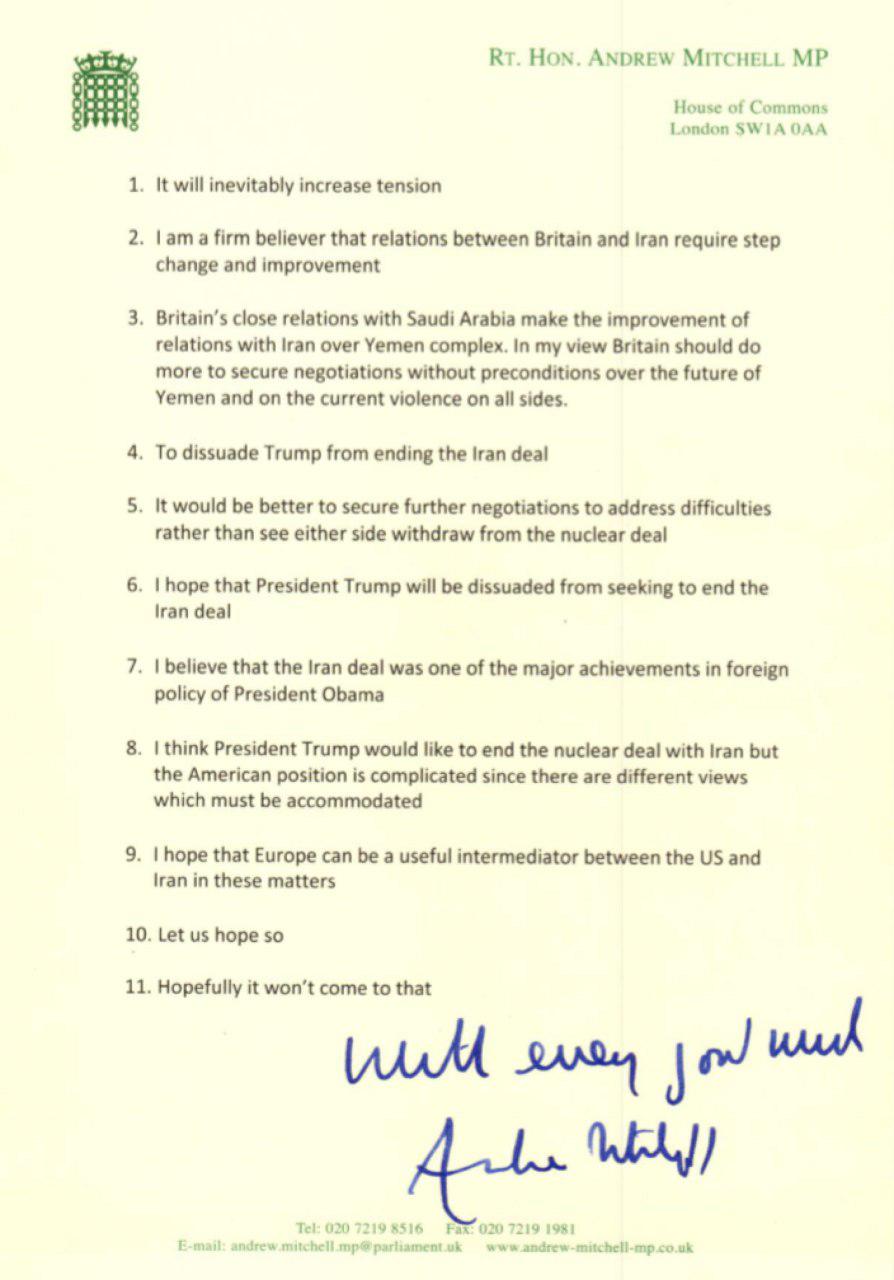 RT. HON. ANDREW MITCHELL MP
House of Commons
London SW1A 0AA
1. It will inevitably increase tension
2. I am a firm believer that relations between Britain and Iran require step
change and improvement
3. Britain's close relations with Saudi Arabia make the improvement of
relations with Iran over Yemen complex. In my view Britain should do
more to secure negotiations without preconditions over the future of
Yemen and on the current violence on all sides.
4. To dissuade Trump from ending the Iran deal
5. It would be better to secure further negotiations to address difficulties
rather than see either side withdraw from the nuclear deal
6. I hope that President Trump will be dissuaded from seeking to end the
Iran deal
7. I believe that the Iran deal was one of the major achievements in foreign
policy of President Obama
8. I think President Trump would like to end the nuclear deal with Iran but
the American position is complicated since there are different views
which must be accommodated
9. I hope that Europe can be a useful intermediator between the US and
Iran in these matters
10. Let us hope so
11. Hopefully it won't come to that
With every good wish
Andrew Mitchell
Tel: 020 7219 8516 Fax: 020 7219 1981
E-mail: andrew.mitchell.mp@parliament.uk www.andrew-mitchell-mp.co.uk